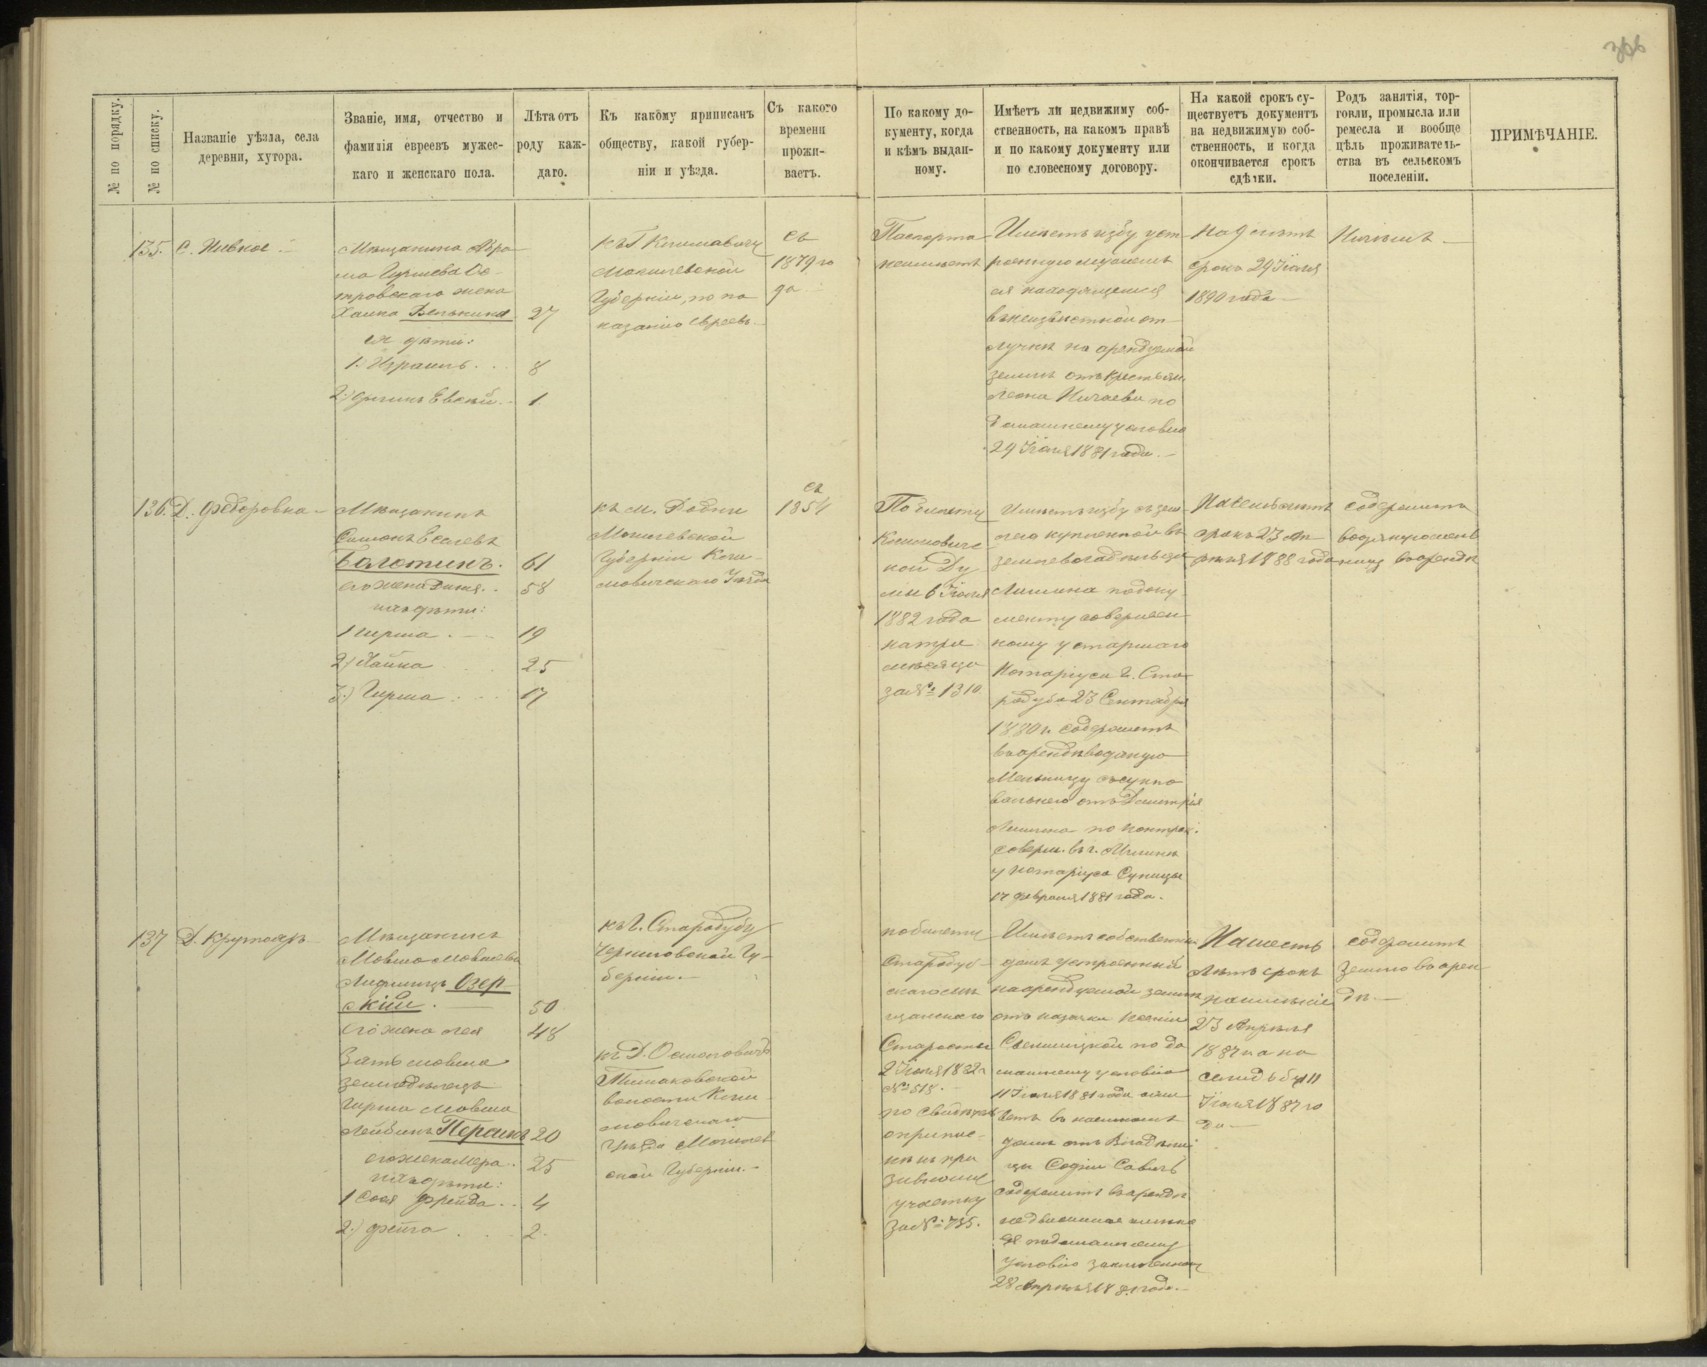 366
№ по порядку.
№ по списку.
Названіе уѣзда, села
деревни, хутора.
Званіе, имя, отчество и
фамилія евреевъ мужес-
каго и женскаго пола.
Лѣта отъ
роду каж-
даго.
Къ какому приписанъ
обществу, какой губер-
ніи и уѣзда.
Съ какого
времени
прожи-
ваетъ.
По какому до-
кументу, когда
и кѣмъ выдан-
ному.
Имѣетъ ли недвижиму соб-
ственность, на какомъ правѣ
и по какому документу или
по словесному договору.
На какой срокъ су-
ществуетъ документъ
на недвижимую соб-
ственность, и когда
окончивается срокъ
сдѣлки.
Родъ занятія, тор-
говли, промысла или
ремесла и вообще
цѣль проживатель-
ства въ сельскомъ
поселеніи.
ПРИМѢЧАНІЕ.
135.
С. Нивное
Мѣщанина Абра
ма Гуршева Ос-
тровскаго жена
Хаика Велькина
ея дѣти:
1. Израиль
2)
27
8
1
къ Г. Климовичу
Могилевской
Губерніи, по по
казанію евреевъ
съ
1879 го
да
Паспорта
неимѣетъ
Имѣетъ избу уст
роенную мужемъ
ея находящемся
въ неизвѣстной от
лучкѣ на арендуемой
землѣ отъ крестьян.
Леона Ничаева по
домашнему условію
29 Іюля 1881 года
На 9 лѣтъ
срокъ 29 Іюля
1890 года
136.
Д. Федоровка
Мѣщанинъ
Симонъ Евсеевъ
Болотинъ.
его жена
ихъ дѣти:
1 Гирша
2) Хайка
3) Гирша
61
58
19
25
17
къ м. Родни
Могилевской
Губерніи Кли-
мовичскаго Уѣзда
съ
1854
По билету
Климовичс
кой Ду
мы 6 Іюля
1882 года
на три
мѣсяца
за № 1310
Имѣетъ избу съ зем
лею купленной въ
землевладѣльца
Лишина по доку
менту совершен
ному у старшаго
Нотаріуса г. Ста
родуба 23 Сентября
1880 г. содержитъ
въ арендѣ водяную
Мельницу съ сукно
вальнею отъ Дмитрія
Лишина по контрак.
соверш. въ г. Мглинѣ
у нотаріуса Суницы
17 февраля 1881 года.
срокъ 23 Ап
рѣля 1888 года
содержитъ
водяную мель
ницу въ арендѣ
137
Д. Крутояръ
Мѣщанинъ
Мовша Мовшевъ
Лифшицъ Озер
скій
его жена Лея
Зять Мовша
земледѣлецъ
Гирша Мовша
Лейбинъ Персинъ
его жена Мера
ихъ дѣти:
1 Соея Фрейда
2) Фейга
50
48
20
25
4
2
къ г. Стародубу
Черниговской Гу-
берніи.
къ Д. Осмоловичъ
волости Кли
мовичскаго
Уѣзда Могилев
ской Губерніи.
по билету
Стародуб
скаго мѣ
щанскаго
Старосты
2 Іюля 1882 г.
№ 518.
по свидѣтел.
о припис-
кѣ къ при
зывному
участку
за № 755.
Имѣетъ собственный
домъ устроенный
на арендуемой землѣ
отъ казачки Ксеніи
Свѣшицкой по до
машнему условію
11 Іюля 1881 года
ветъ въ наемномъ
домѣ отъ Владѣли
цы Софіи Савичъ
содержитъ въ арендѣ
недвижимое имѣніе
по домашнему
условію заключенному
28 Апрѣля 1881 года.
На шесть
лѣтъ срокъ
на имѣніе
23 Апрѣля
1887 г. а на
11
Іюля 1887 го
да
содержитъ
землю въ арен
дѣ